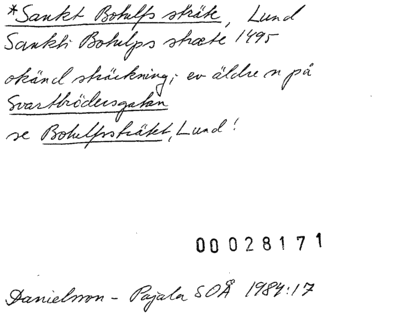 *Sankt Bohulfs stråk, Lund
Sankti Bohulps stræte 1495
okänd sträckning; ev äldre n på
Svartbrödersgatan
se Bohulfsstråket, Lund!
00028171
Danielsson - Pajala SOÅ 1984:17